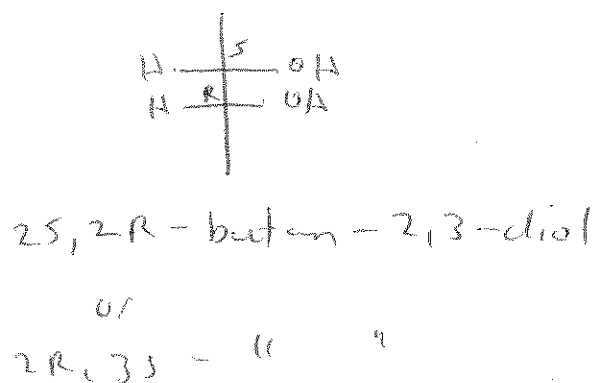 S
H OH
R
H OH
2S,2R - butan - 2,3-diol
or
2R,3S - " "